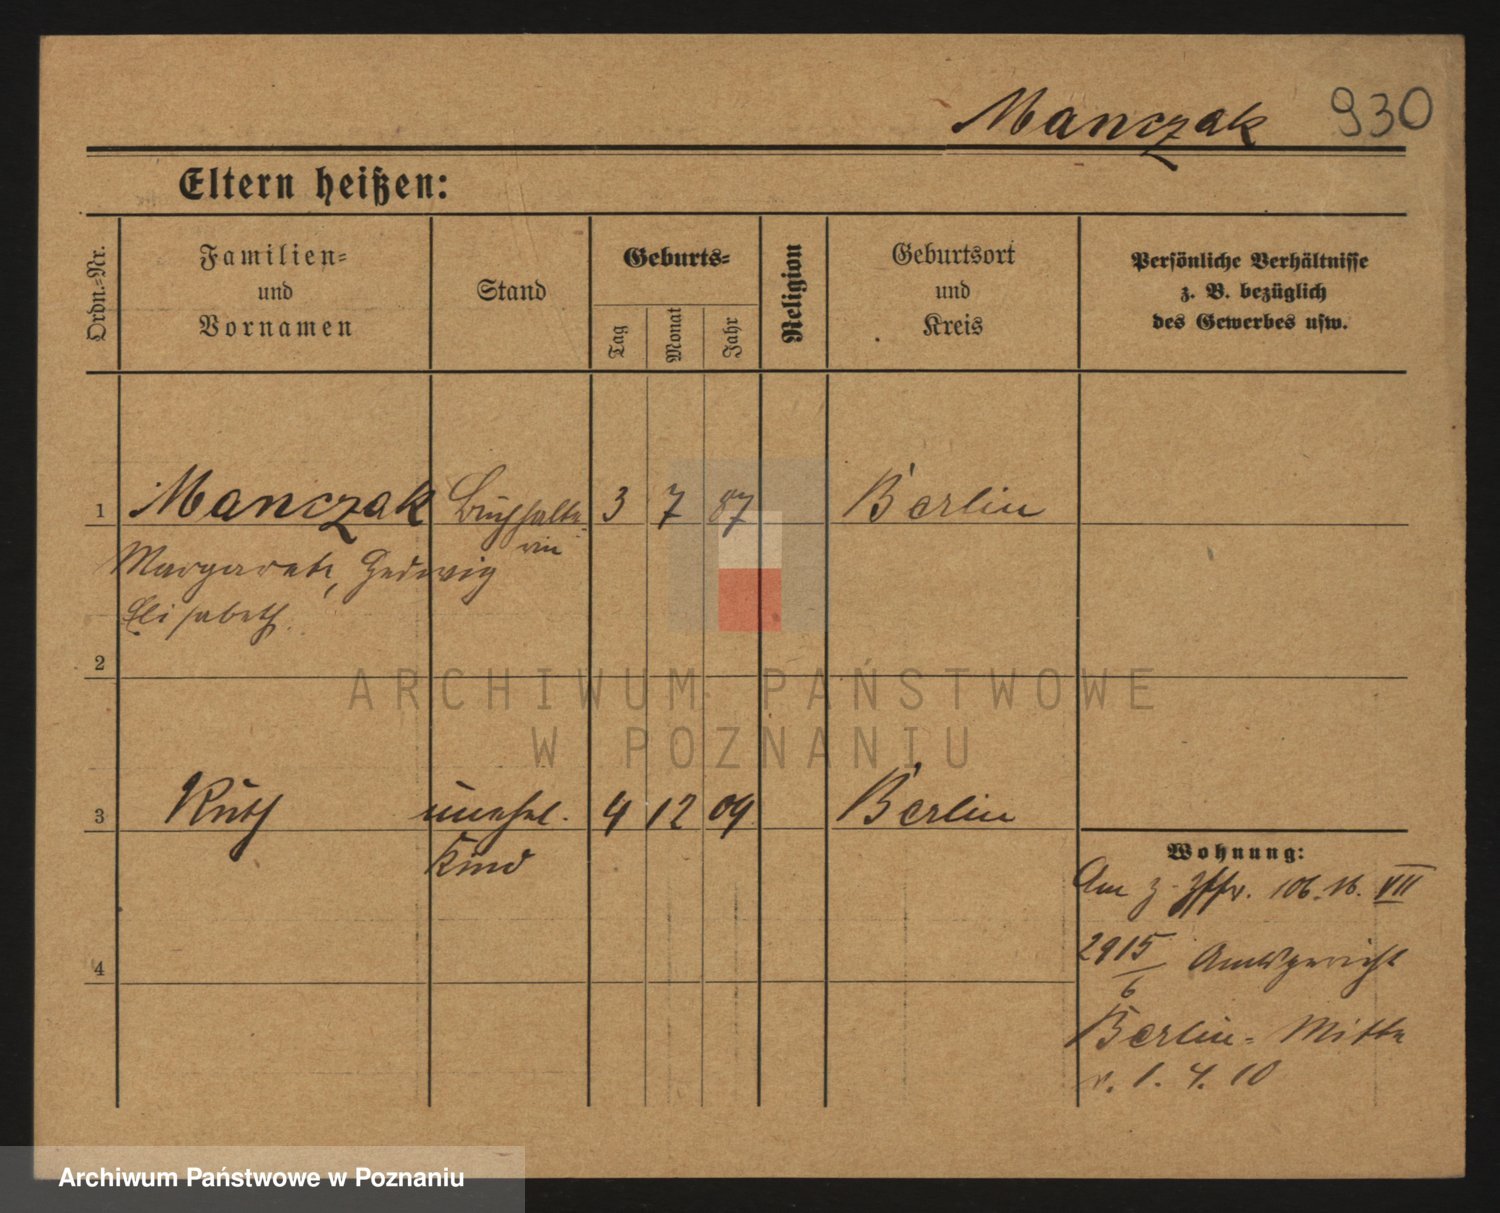 Manczak 930
Eltern heißen:
Ordn.-Nr.
Familien-
und
Vornamen
Stand
Geburts-
Tag
Monat
Jahr
Religion
Geburtsort
und
Kreis
Persönliche Verhältnisse
z. B. bezüglich
des Gewerbes usw.
1 Manczak Buchhalte- 3 7 87 Berlin
rin
Margarete, Hedwig
Elisabeth.
2
ARCHIWUM PAŃSTWOWE
W POZNANIU
3 Ruth unehel. 4 12 09 Berlin
Kind
Wohnung:
106. 16. VII
4
2915/6 Amtsgericht
Berlin-Mitte
v. 1. 4. 10
Archiwum Państwowe w Poznaniu